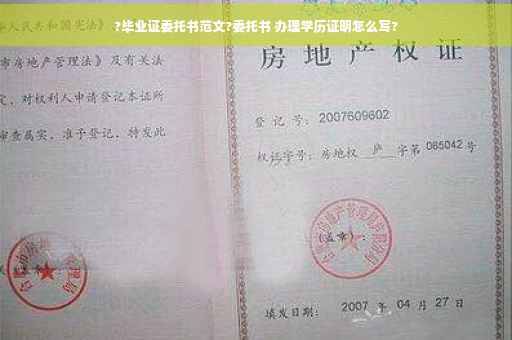 ?毕业证委托书范文?委托书 办理学历证明怎么写?
人民共和国宪法》
市房地产管理法》及有关法
定，对权利人申请登记本证所
审查属实，准予登记，特发此
房地产权证
登记号：2007609602
权证字号：房地权 庐 字第 065042 号
(盖章)：
填发日期：2007 年 04 月 27 日